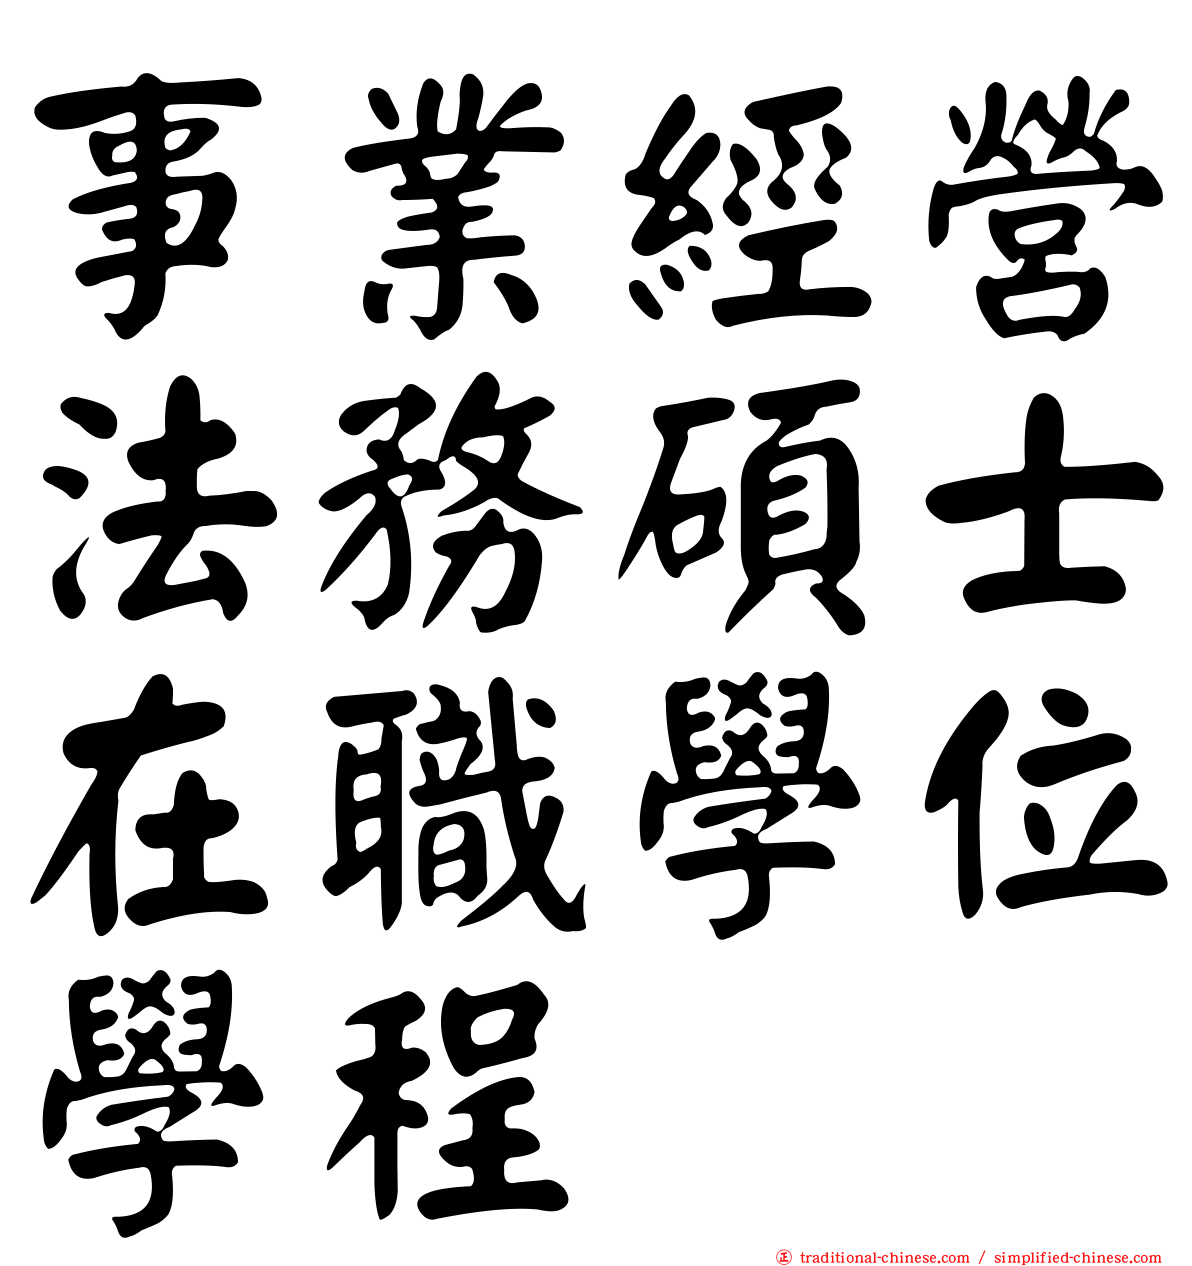 事業經營
法務碩士
在職學位
學程
㊣ traditional-chinese.com / simplified-chinese.com